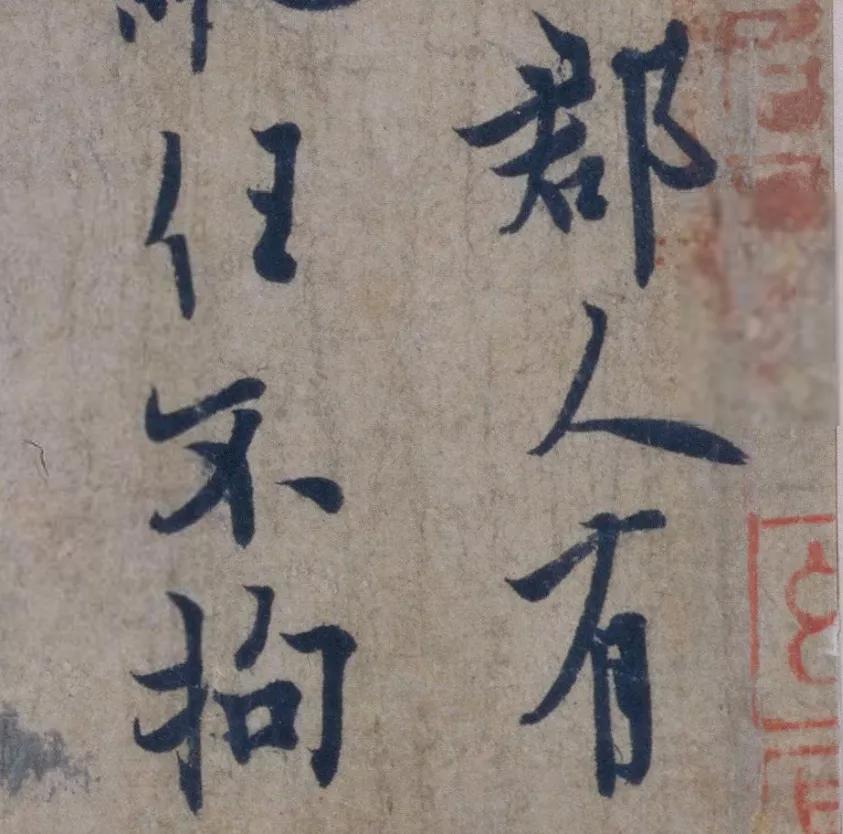 郡人有
任不拘